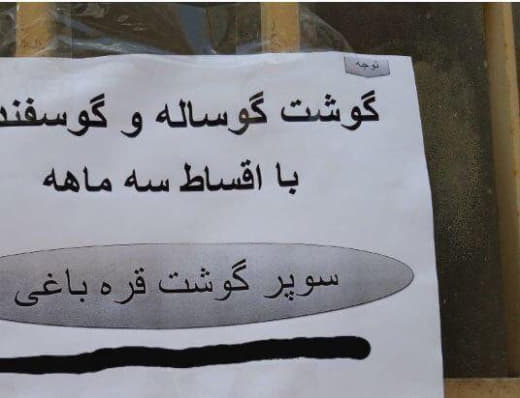 توجه
گوشت گوساله و گوسفند
با اقساط سه ماهه
سوپر گوشت قره باغی